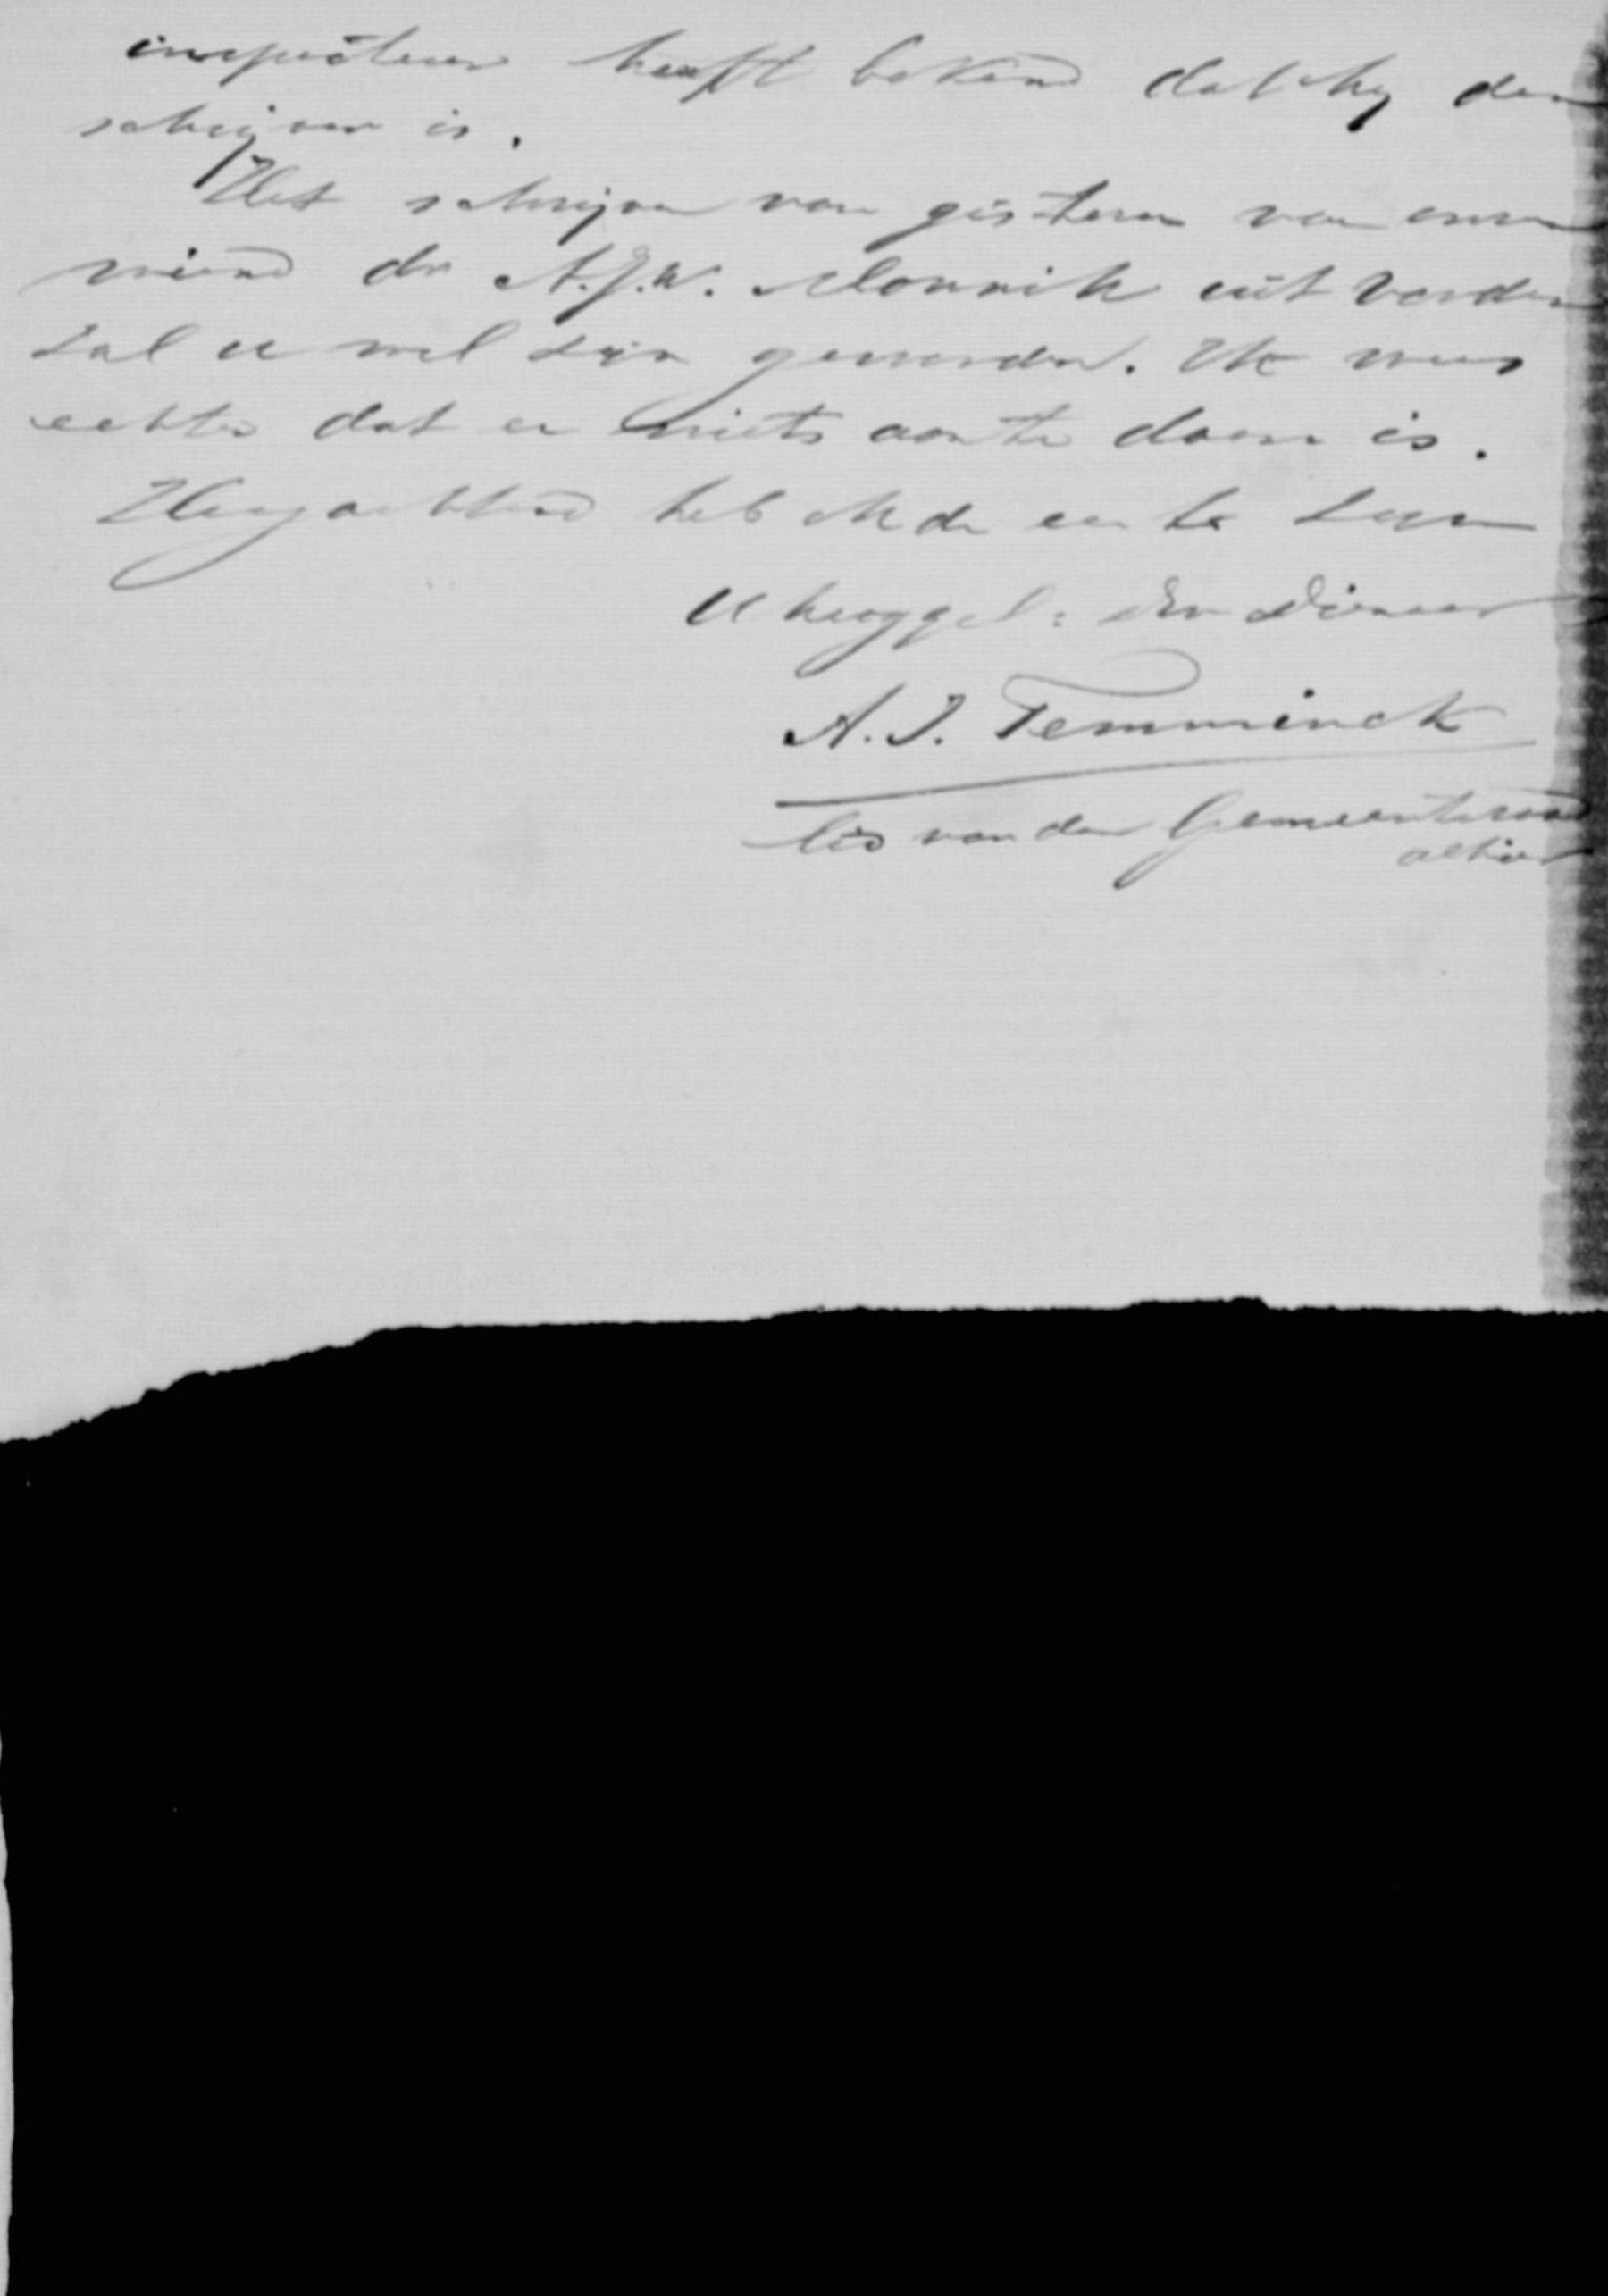 inspecteur heeft bekend dat hy de
schrijver is.
Het schrijven van gisteren van onzen
vriend dr A.J.W. Monnik uit Vorden
zal u wel zijn geworden. Ik vrees
echter dat er niets aan te doen is.
Hoogachtend heb ik de eer te zijn
U hooggel: Dw Dienaar
A. J. Temminck
lid van den Gemeenteraad
alhier